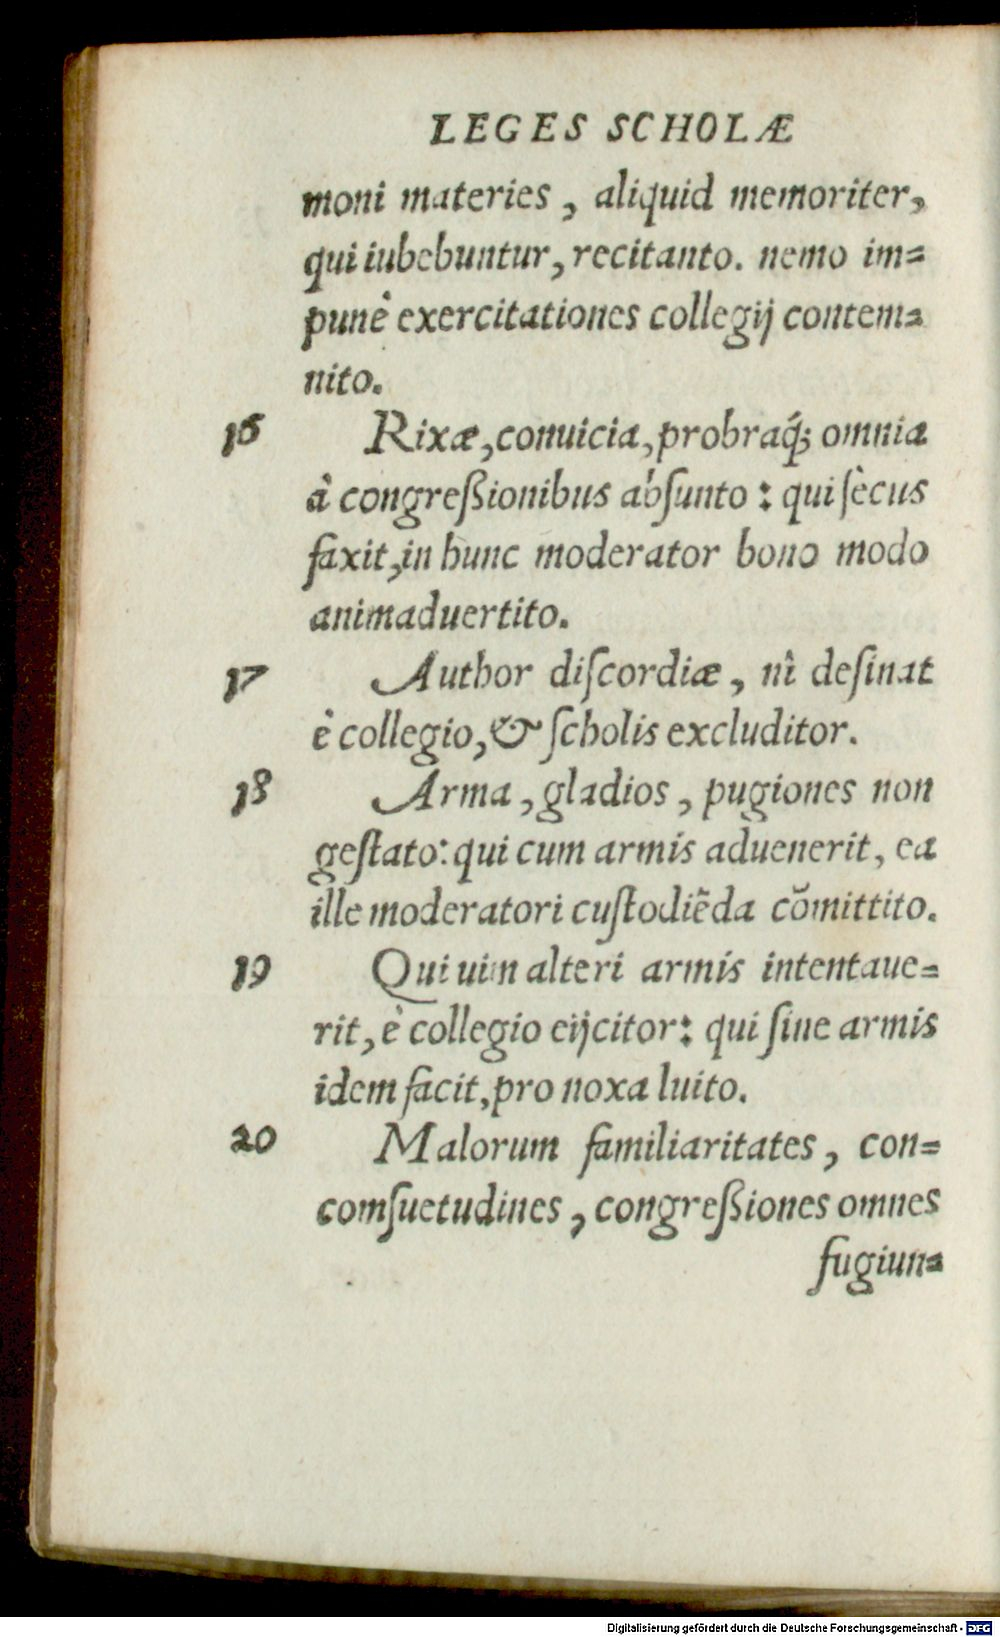 LEGES SCHOLÆ
moni materies, aliquid memoriter,
qui iubebuntur, recitanto. nemo im=
punè exercitationes collegij contem=
nito.
16 Rixæ, conuicia, probraq́; omnia
à congreßionibus abſunto: qui ſècus
faxit, in hunc moderator bono modo
animaduertito.
17 Author diſcordiæ, nî deſinat
è collegio, & ſcholis excluditor.
18 Arma, gladios, pugiones non
geſtato: qui cum armis aduenerit, ea
ille moderatori cuſtodiẽda cõmittito.
19 Qui uim alteri armis intentaue=
rit, è collegio eijcitor: qui ſine armis
idem facit, pro noxa luito.
20 Malorum familiaritates, con=
comſuetudines, congreßiones omnes
fugiun=
Digitalisierung gefördert durch die Deutsche Forschungsgemeinschaft - DFG